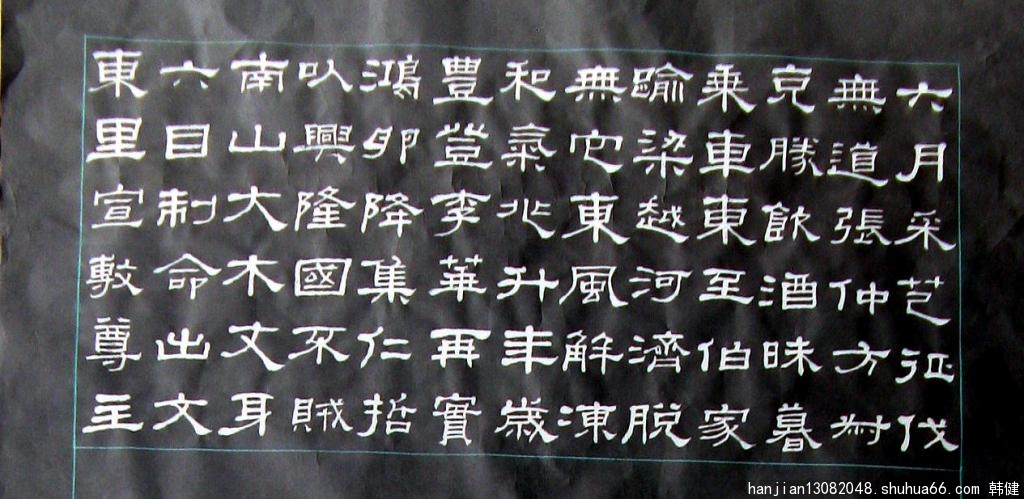 六月采芑征伐
無道張仲方叔
克勝飲酒昧暮
乘車東至伯家
踰梁越河濟脫
無它東風解凍
和氣兆升年歲
豐登李華再實
鴻卵降集仁哲
以興隆國不賊
南山大木文身
六目制命出文
東里宣敷尊主
hanjian13082048. shuhua66.com 韩健